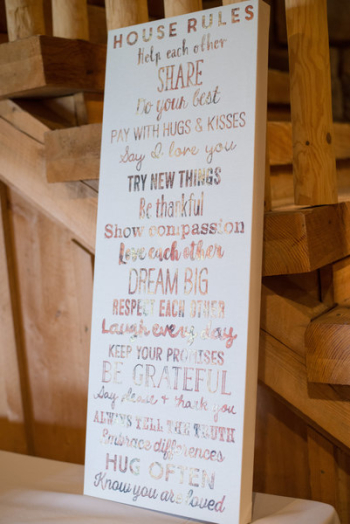 HOUSE RULES
Help each other
SHARE
Do your best
PAY WITH HUGS & KISSES
Say I love you
TRY NEW THINGS
Be thankful
Show compassion
Love each other
DREAM BIG
RESPECT EACH OTHER
Laugh every day
KEEP YOUR PROMISES
BE GRATEFUL
Say please & thank you
ALWAYS TELL THE TRUTH
Embrace differences
HUG OFTEN
Know you are loved